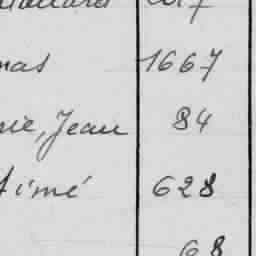 mas 1667
nie, Jean 84
Aimé 628
68